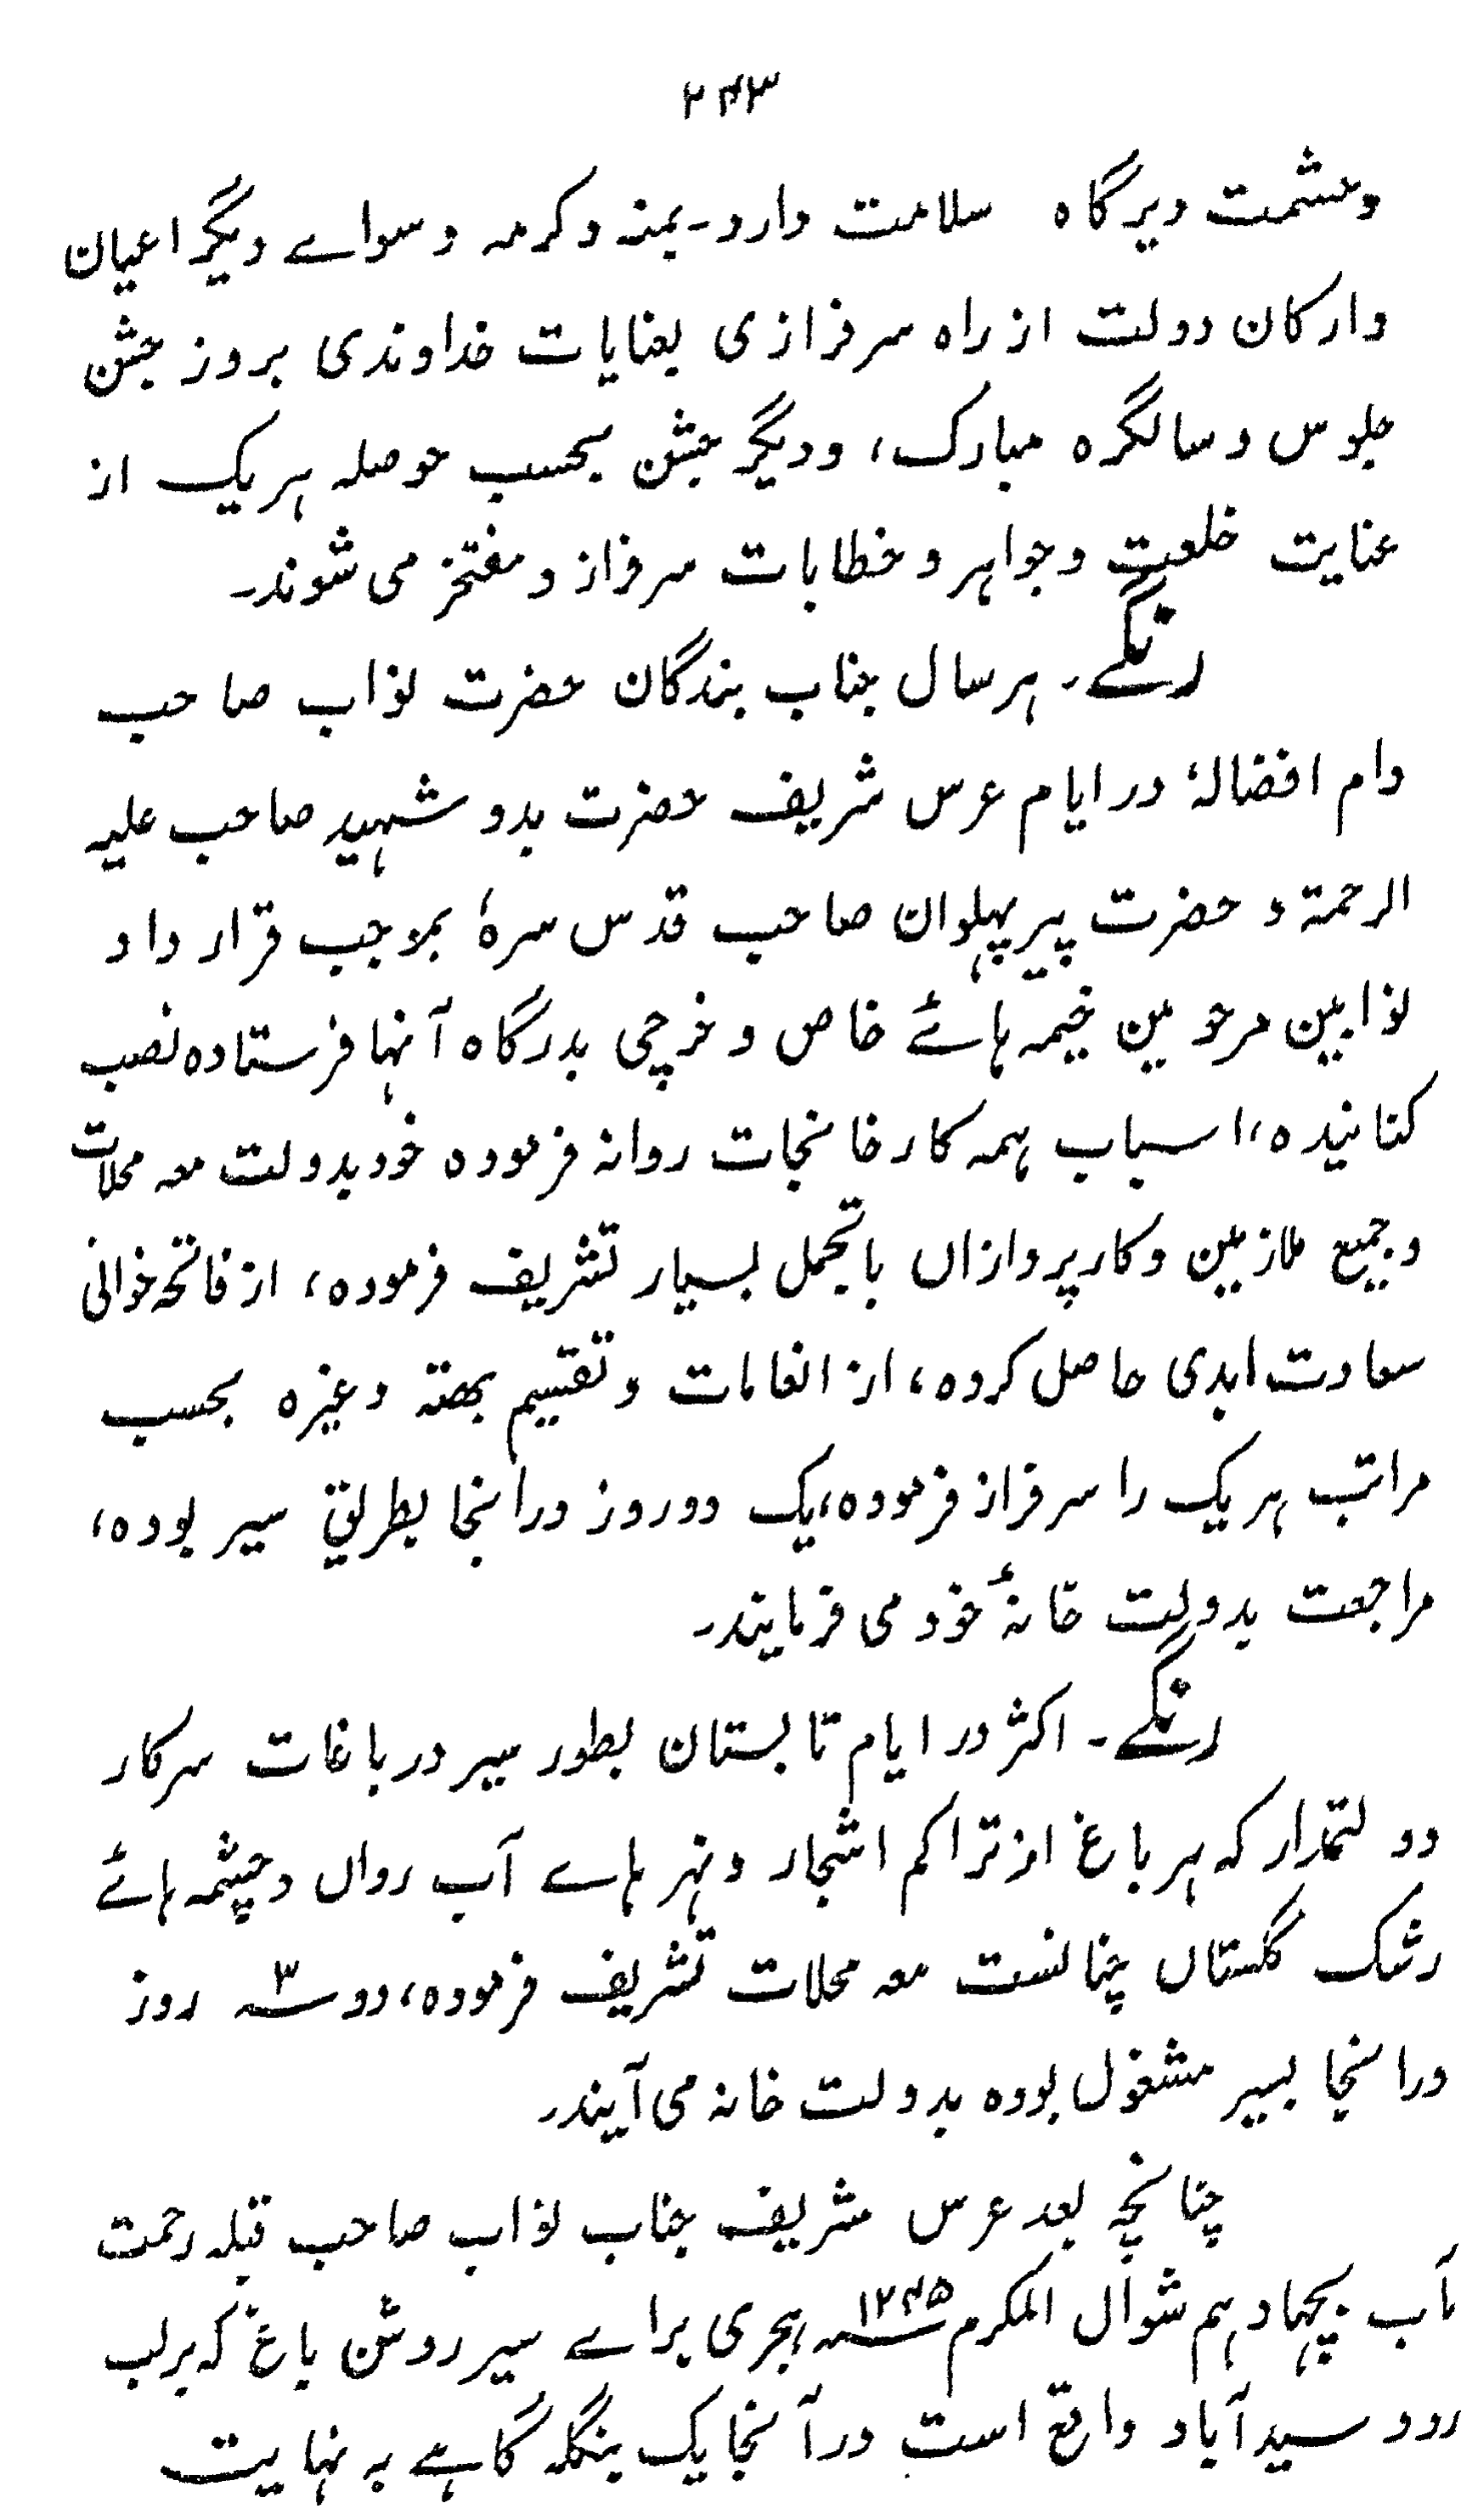 ۲۴۳
وحشمت دیرگاه سلامت دارد۔ بمنہ وکرمہ وسواے دیگر اعیان
وارکان دولت از راہ سرفرازی بعنایات خداوندی بروز جشن
جلوس وسالگرہ مبارک، ودیگر جشن بحسب حوصلہ ہریک از
عنایت خلعت وجواہر وخطابات سرفراز ومفتخر می شوند۔
رنگے۔ ہرسال جناب بندگان حضرت نواب صاحب
دام افضالہٗ در ایام عرس شریف حضرت بدو شہید صاحب علیہ
الرحمة و حضرت پیر پہلوان صاحب قدس سرہٗ بموجب قرار داد
نوابین مرحومین خیمہ ہائے خاص و خرچی بدرگاه آنہا فرستادہ نصب
کنانیدہ، اسباب ہمہ کارخانجات روانہ فرمودہ خود بدولت معہ محلات
وجمیع ملازمین وکارپردازاں باتجمل بسیار تشریف فرمودہ، از فاتحہ خوانی
سعادت ابدی حاصل کردہ، از انعامات وتقسیم بھتہ وغیرہ بحسب
مراتب ہریک را سرفراز فرمودہ، یک دو روز درانجا بطریق سیر بودہ،
مراجعت بدولت خانۂ خود می فرمایند۔
رنگے۔ اکثر در ایام تابستان بطور سیر در باغات سرکار
دولتمدار کہ ہر باغ از تراکم اشجار ونہر ہاے آب رواں وچشمہ ہائے
رشک گلستاں چنانست معہ محلات تشریف فرمودہ، دو سہ ۳ روز
درانجا بسیر مشغول بودہ بدولت خانہ می آیند۔
چنانچہ بعد عرس شریف جناب نواب صاحب قبلہ رحمت
مآب بچہاردہم شوال المکرم ۱۲۴۵؁ ہجری براے سیر روشن باغ کہ برلب
رود سیدآباد واقع است درآنجا یک بنگلہ گاہے بہ نہایت